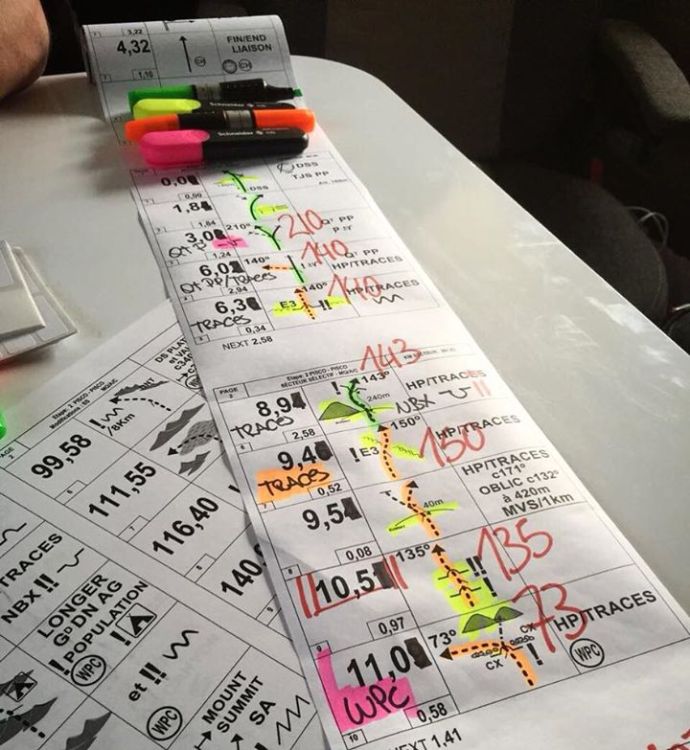 3,22
4,32
FIN/END
LIAISON
CH
CH
1,10
Schneider
Schneider
0,0
DSS
TJS PP
0,00
DSS
1,8
1,84
210
PP
210°
3,0
1,24
140
PP
HP/TRACES
140°
6,0
PP/TRACES
2,94
140
HP/TRACES
140°
6,3
E3
!!
TRACES
0,34
NEXT 2,58
PAGE
2
Etape: 2 PISCO - PISCO
SECTEUR SÉLECTIF - MO/A/C
143
!
143°
240m
HP/TRACES
NBX
8,9
TRACES
2,58
150°
150
HP/TRACES
9,4
!E3
TRACES
0,52
HP/TRACES
c171°
OBLIC c132°
à 420m
MVS/1km
9,5
40m
0,08
135°
135
10,5
!!
!
0,97
73°
73
HP/TRACES
11,0
CX
CX
!
WPC
WPC
0,58
NEXT 1,41
Etape: 2 PISCO - PISCO
DS PLAT
et VAL
99,58
!!
/8Km
111,55
116,40
140
TRACES
NBX !!
LONGER
G° DN AG
! POPULATION
WPC
!
et !!
WPC
MOUNT
SUMMIT
SA